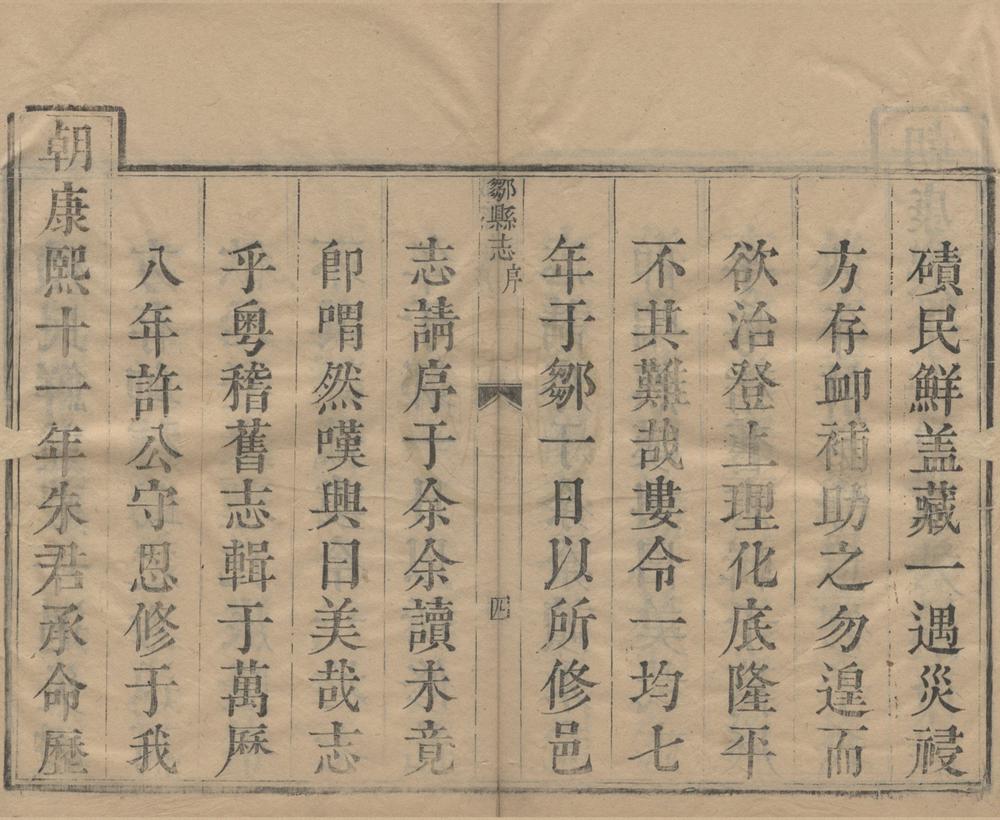 磧民鮮盖藏一遇災祲
方存卹補助之勿遑而
欲治登上理化底隆平
不其難哉婁令一均七
年于鄒一日以所修邑
鄒縣志 序 四
志請序于余余讀未竟
卽喟然嘆興曰美哉志
乎粵稽舊志輯于萬厯
八年許公守恩修于我
朝康熙十一年朱君承命歷